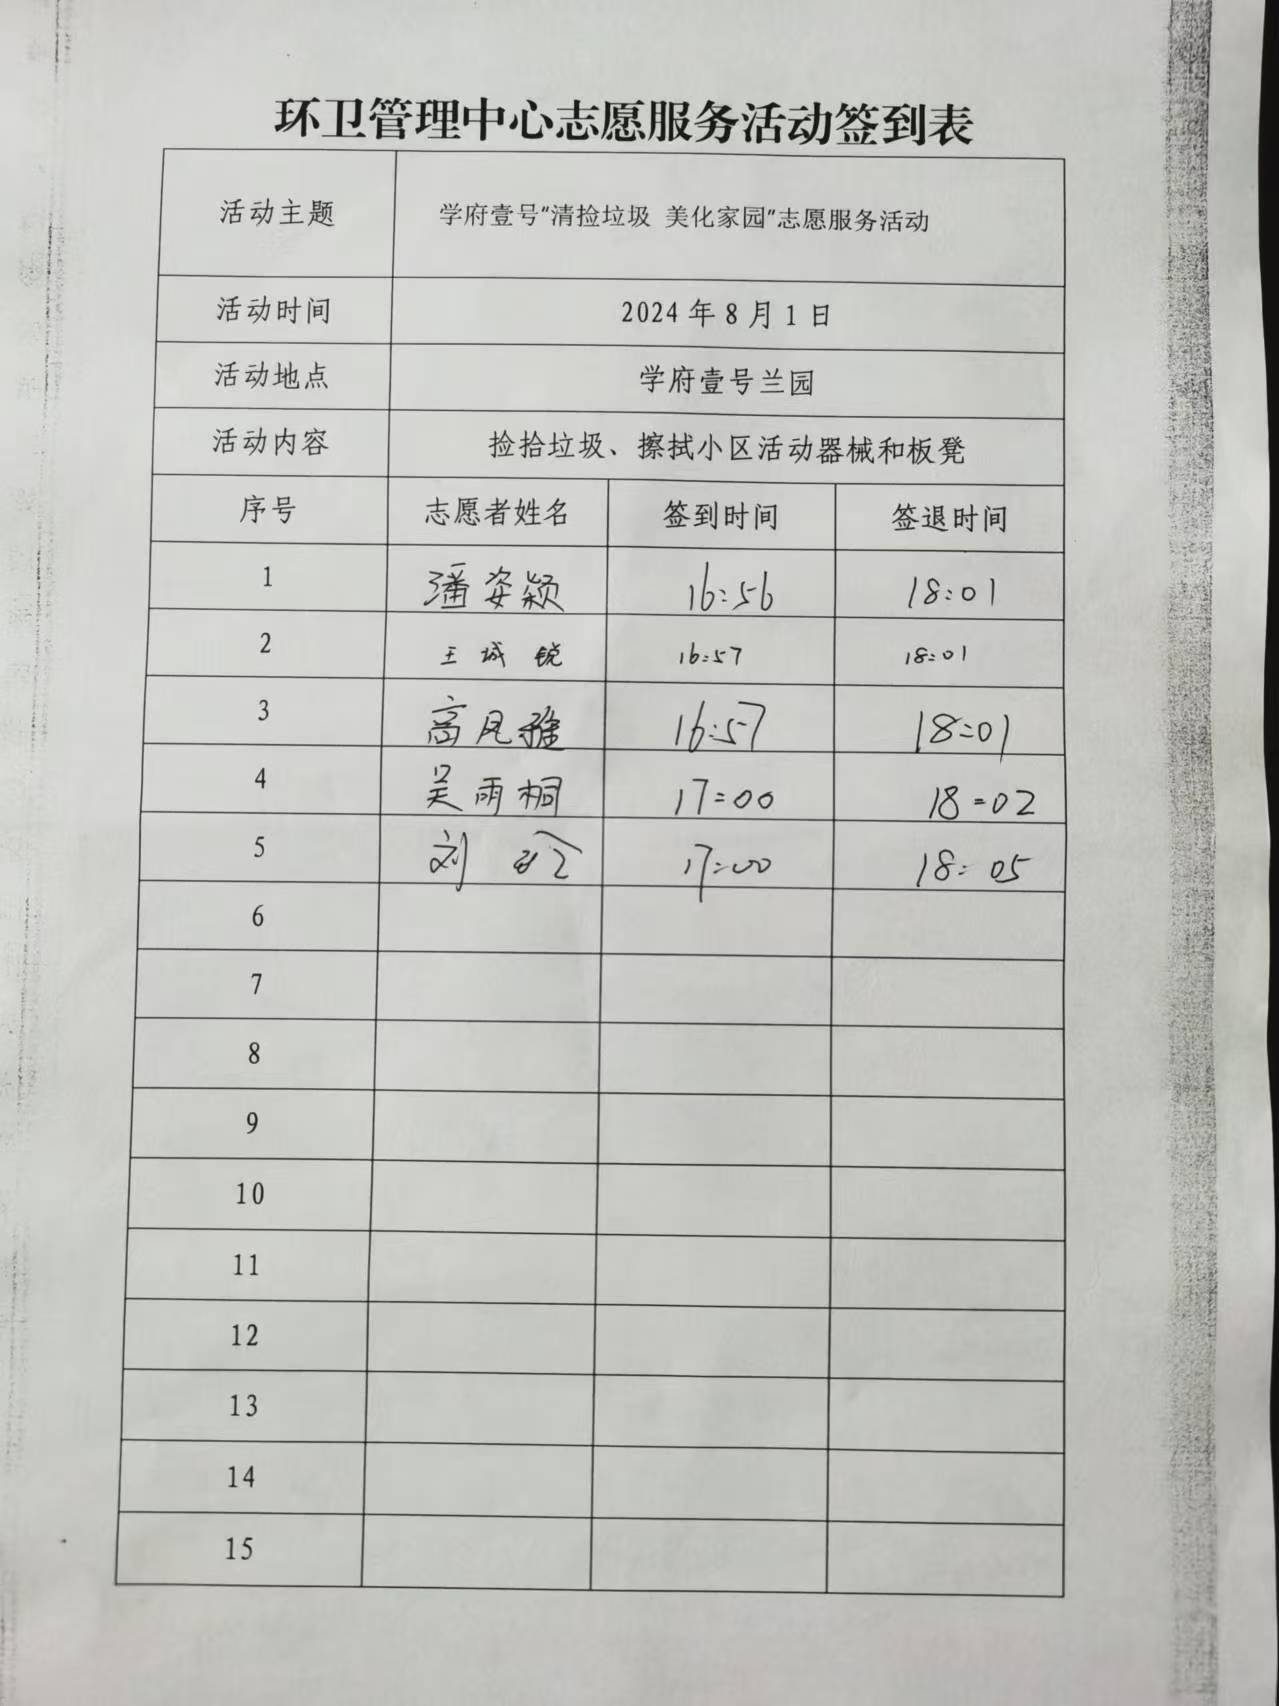 环卫管理中心志愿服务活动签到表
活动主题 学府壹号"清捡垃圾 美化家园"志愿服务活动
活动时间 2024年8月1日
活动地点 学府壹号兰园
活动内容 捡拾垃圾、擦拭小区活动器械和板凳
序号 志愿者姓名 签到时间 签退时间
1 潘姿颖 16:56 18:01
2 王城锐 16:57 18:01
3 高凡雅 16:57 18:01
4 吴雨桐 17:00 18:02
5 刘玲 17:00 18:05
6
7
8
9
10
11
12
13
14
15